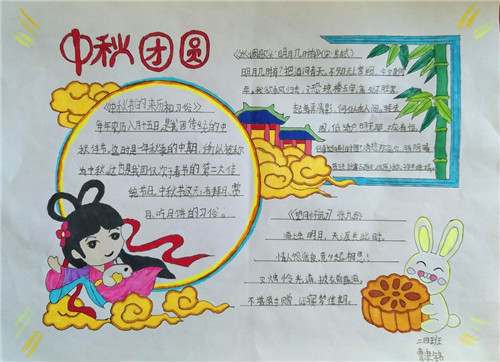 中秋团圆
《中秋节的来历和习俗》
每年农历八月十五日,是我国传统的中
秋佳节。这时是一年秋季的中期,所以被称
为中秋。这也是我国仅次于春节的第二大传
统节日。中秋节这天,有拜月、赏
月、吃月饼的习俗。
《水调歌头·明月几时有》(宋·苏轼)
明月几时有?把酒问青天。不知天上宫阙,今夕是何
年。我欲乘风归去,又恐琼楼玉宇,高处不胜寒。
起舞弄清影,何似在人间。转朱
阁,低绮户,照无眠。不应有恨,
《望月怀远》张九龄
海上生明月,天涯共此时。
情人怨遥夜,竟夕起相思!
灭烛怜光满,披衣觉露滋。
不堪盈手赠,还寝梦佳期。
二四班